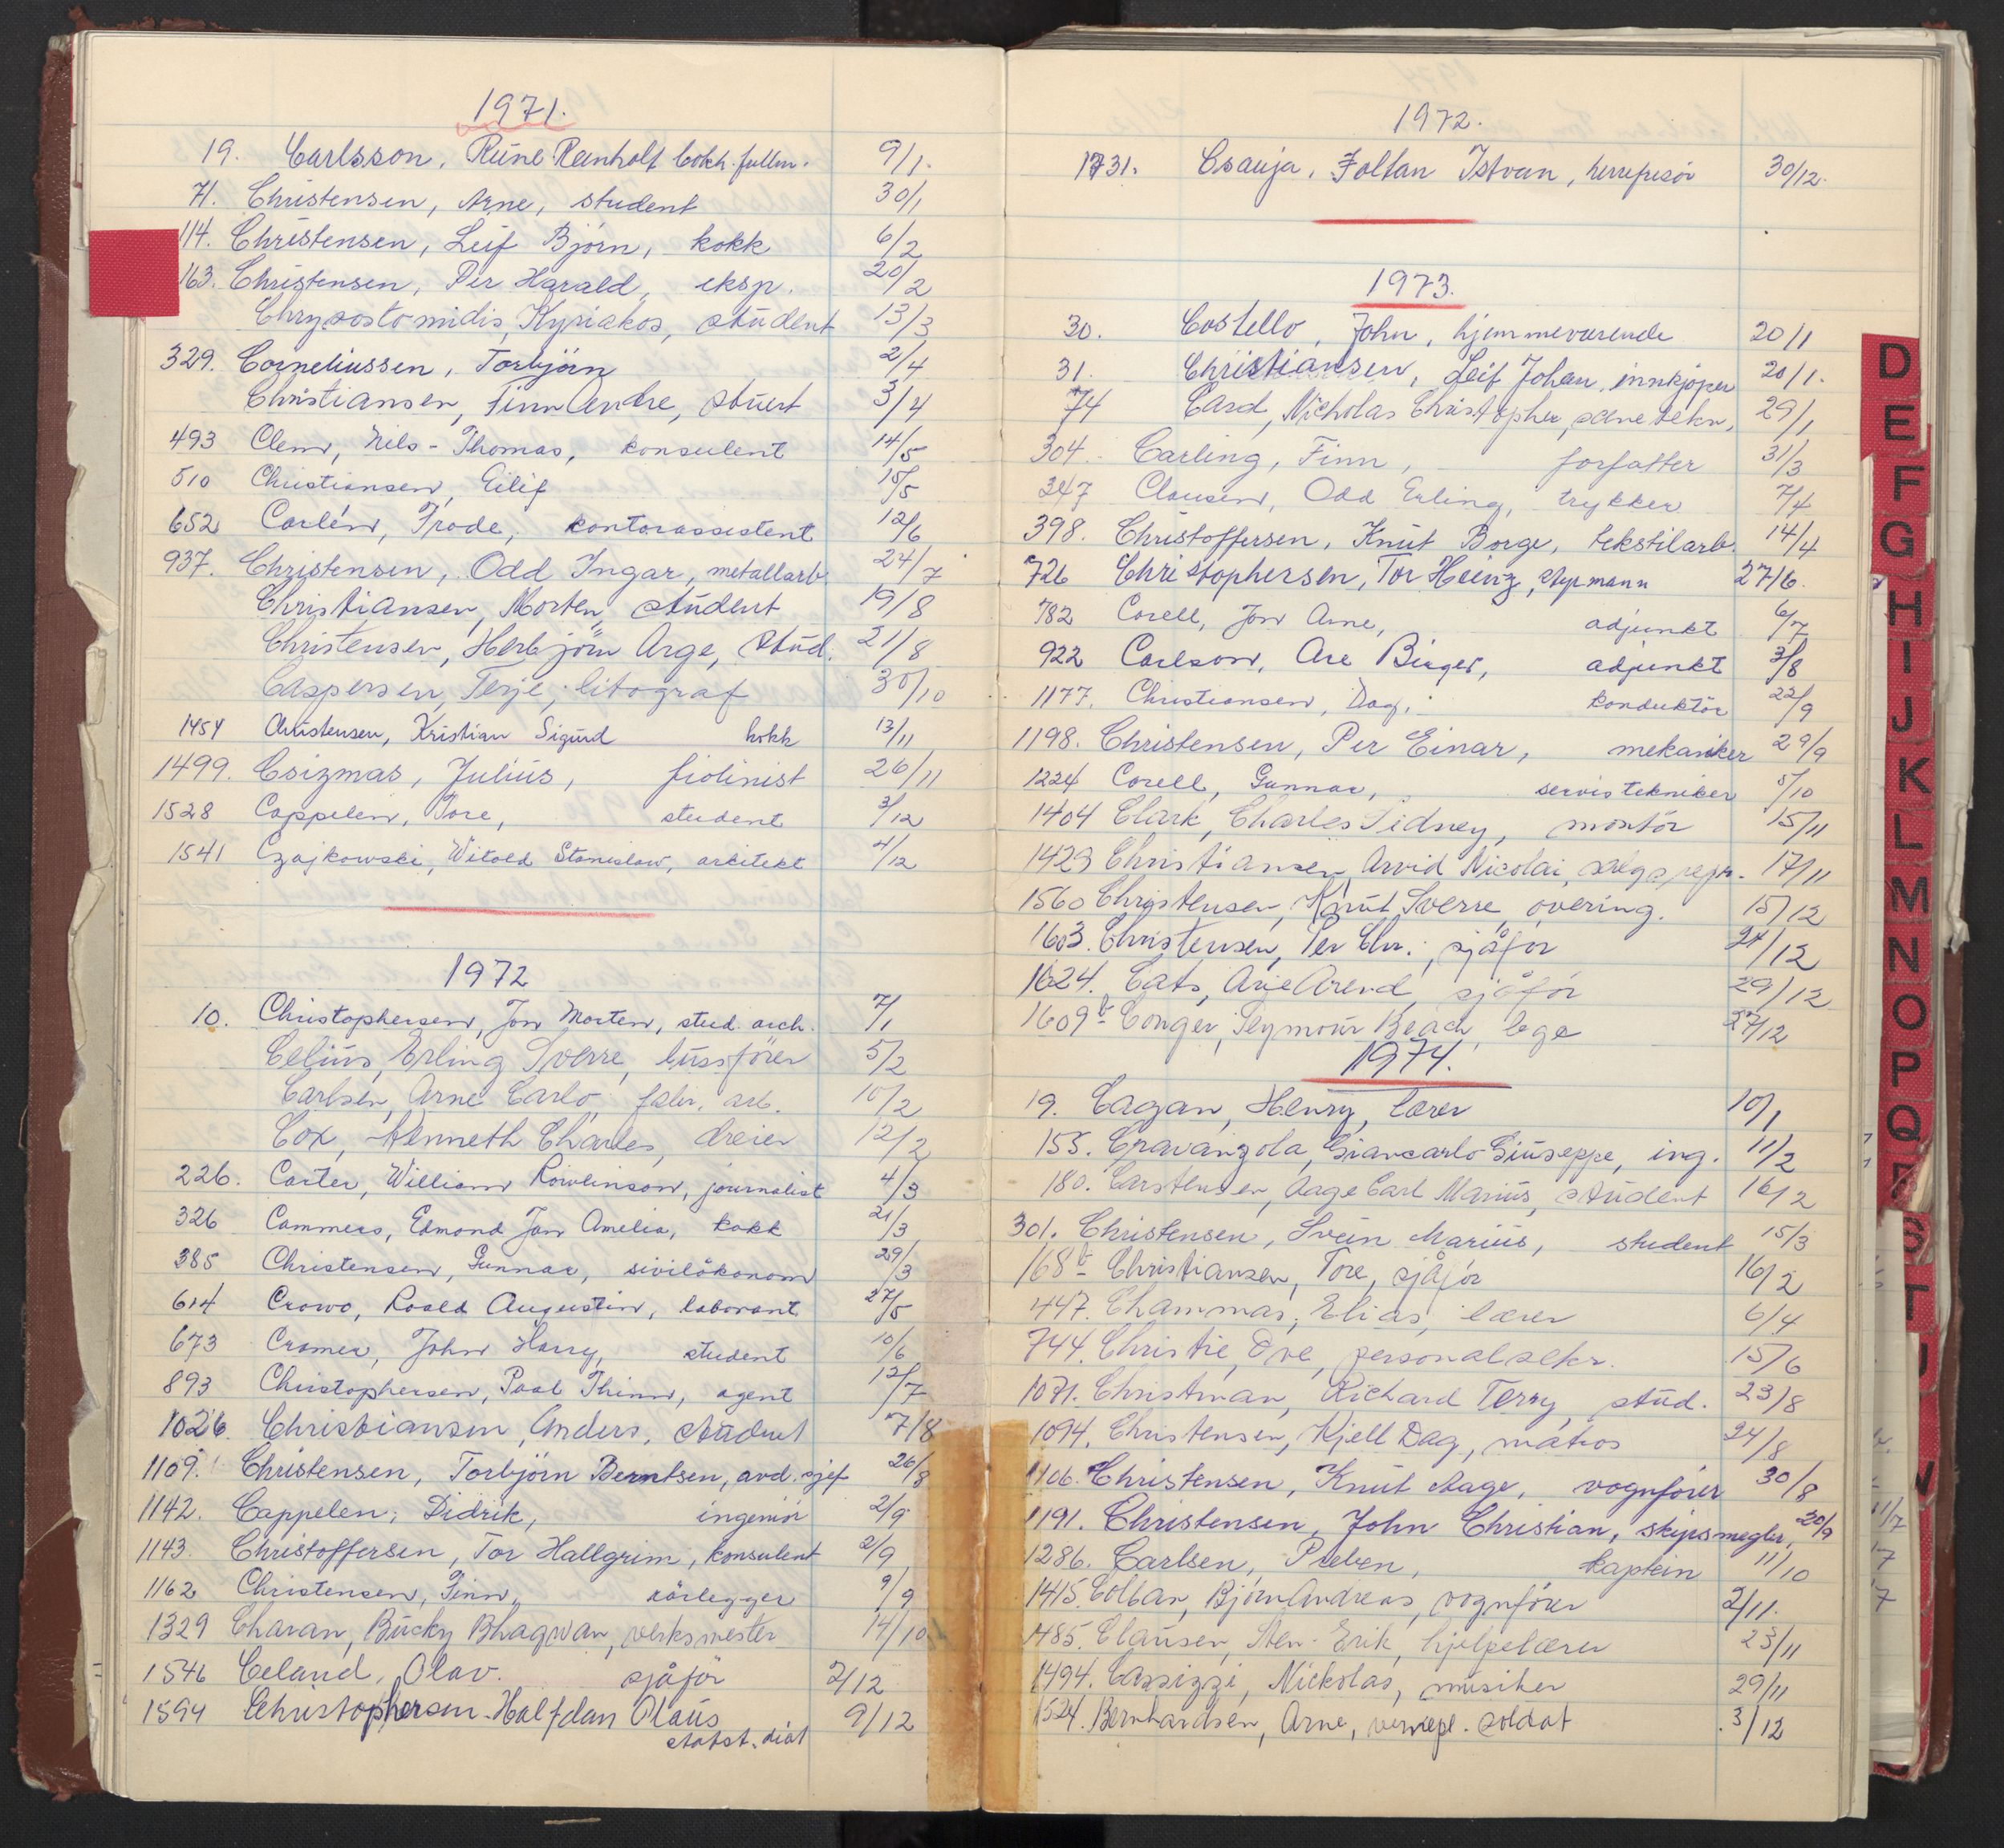 1971.
19. Carlsson, Rune Reinholt
9/1.
71. Christensen, Arne, student 30/1
114. Christensen, Leif Björn, kokk 6/2
163. Christensen, Per Harald, eksp. 20/2
Chrysostomidis, Kyriakos, student 13/3
329. Corneliussen, Torbjörn 2/4
Christiansen, Finn Andre, stuert 3/4
493 Clem, Nils-Thomas, konsulent 14/5
510 Christiansen, Eilif 15/5
652 Carlén, Frode, kontorassistent 12/6
937. Christensen, Odd Ingar, metallarb. 24/7
Christiansen, Morten, student 19/8
Christensen, Herbjörn Arge, stud. 21/8
Caspersen, Terje, litograf 30/10
1454 Christensen, Kristian Sigurd kokk 13/11
1499. Csizmas, Julius, fiolinist 26/11
1528 Cappelen, Tore, student 3/12
1541 Czajkowski, Witold Stanislaw, arkitekt 4/12
1972
10. Christophersen, Jon Morten, stud. arch. 7/1
Celius, Erling Sverre, bussförer 5/2
Carlsen, Arne Carlo, fabr. arb. 10/2
Cox, Kenneth Charles, dreier 12/2
226. Carter, William Rowlinson, journalist 4/3
326 Cammers, Edmond Jan Amelia, kokk 21/3
385 Christensen, Gunnar, siviløkonom 29/3
614 Crowo, Roald Augustin, laborant 27/5
673 Cramer, John Harry, student 10/6
893 Christophersen, Paal Thinn, agent 12/7
1026. Christiansen, Anders, student 7/8
1109. Christensen, Torbjörn Berntsen, avd. sjef 26/8
1142. Cappelen, Didrik, ingeniör 2/9
1143. Christoffersen, Tor Hallgrim, konsulent 2/9
1162 Christensen, Finn, rörlegger 9/9
1329 Charan, Bucky Bhagwan, verksmester 14/10
1546 Celand, Olav. sjåför 2/12
1594 Christophersen Halfdan Olaus 9/12
1972.
1731. Csanja, Zoltan Istvan, herrefrisör 30/12.
1973.
30. Costello, John, hjemmeværende 20/1
31. Christiansen, Leif Johan, innkjøper 20/1.
74 Card, Nicholas Christopher, scenetekn. 29/1
304. Carling, Finn, forfatter 31/3
347 Clausen, Odd Erling, trykker 7/4
398. Christoffersen, Knut Borge, tekstilarb. 14/4
726 Christophersen, Tor Heinz, styrmann 27/6.
782 Corell, Jon Arne, adjunkt 6/7
922 Carlson, Are Birger, adjunkt 3/8
1177. Christiansen, Dag, konduktör 22/9
1198. Christensen, Per Einar, mekaniker 29/9
1224 Corell, Gunnar, servistekniker 5/10
1404 Clark, Charles Sidney, montör 15/11
1423 Christiansen, Arvid Nicolai, salgsrepr. 17/11
1560 Christensen, Knut Sverre, overing. 15/12
1603. Christensen, Per Chr., sjåför 24/12
1624. Cats, Arie Arend, sjåför 29/12
1609b Conger, Seymour Beach, lege 27/12
1974.
19. Cagan, Henry, lærer 10/1
155. Cravanzola, Giancarlo Giuseppe, ing. 11/2
180. Carstensen, Aage Carl Marius, student 16/2
301. Christensen, Svein Marius, student 15/3
168b Christiansen, Tore, sjåför 16/2
447. Chammas, Elias, lærer 6/4
744. Christie, Ove, personalsekr. 15/6
1071. Christman, Richard Terry, stud. 23/8
1094. Christensen, Kjell Dag, matros 24/8
1106. Christensen, Knut Aage, vognfører 30/8
1191. Christensen, John Christian, skipsmegler, 20/9
1286. Carlsen, Preben, kaptein 11/10
1415. Colban, Björn Andreas, vognförer 2/11.
1485. Clausen, Sten-Erik, hjelpelærer 23/11
1494. Cassizzi, Nickolas, musiker 29/11
1524. Bernhardsen, Arne, vernepl. soldat 3/12
D
E
F
G
H
I
J
K
L
M
N
O
P
Q
S
T
U